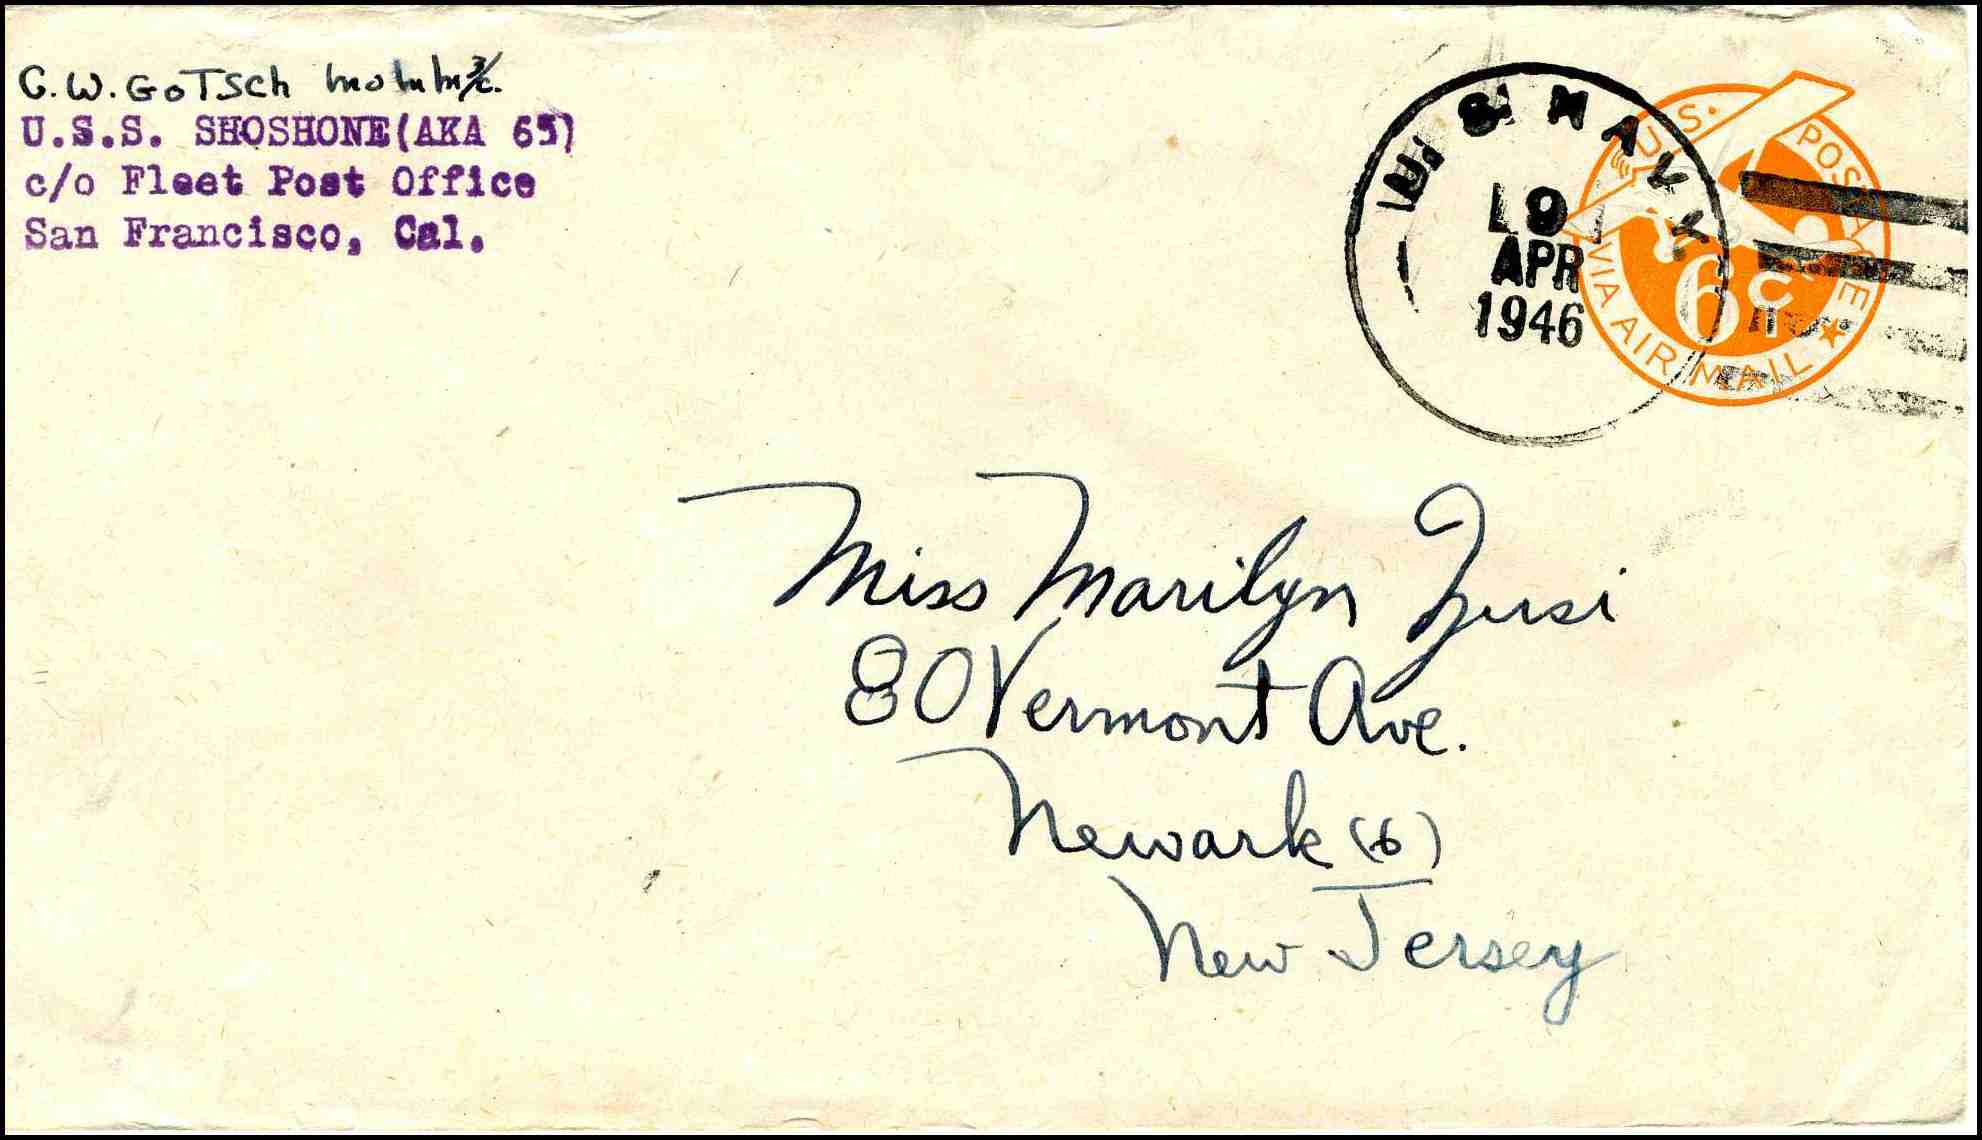 C.W. GOTSCH MoMM 3/c.
U.S.S. SHOSHONE(AKA 65)
c/o Fleet Post Office
San Francisco, Cal.
U.S. NAVY
9
APR
1946
U.S. POSTAGE
6c
VIA AIR MAIL
Miss Marilyn Zusi
80 Vermont Ave.
Newark (6)
New Jersey